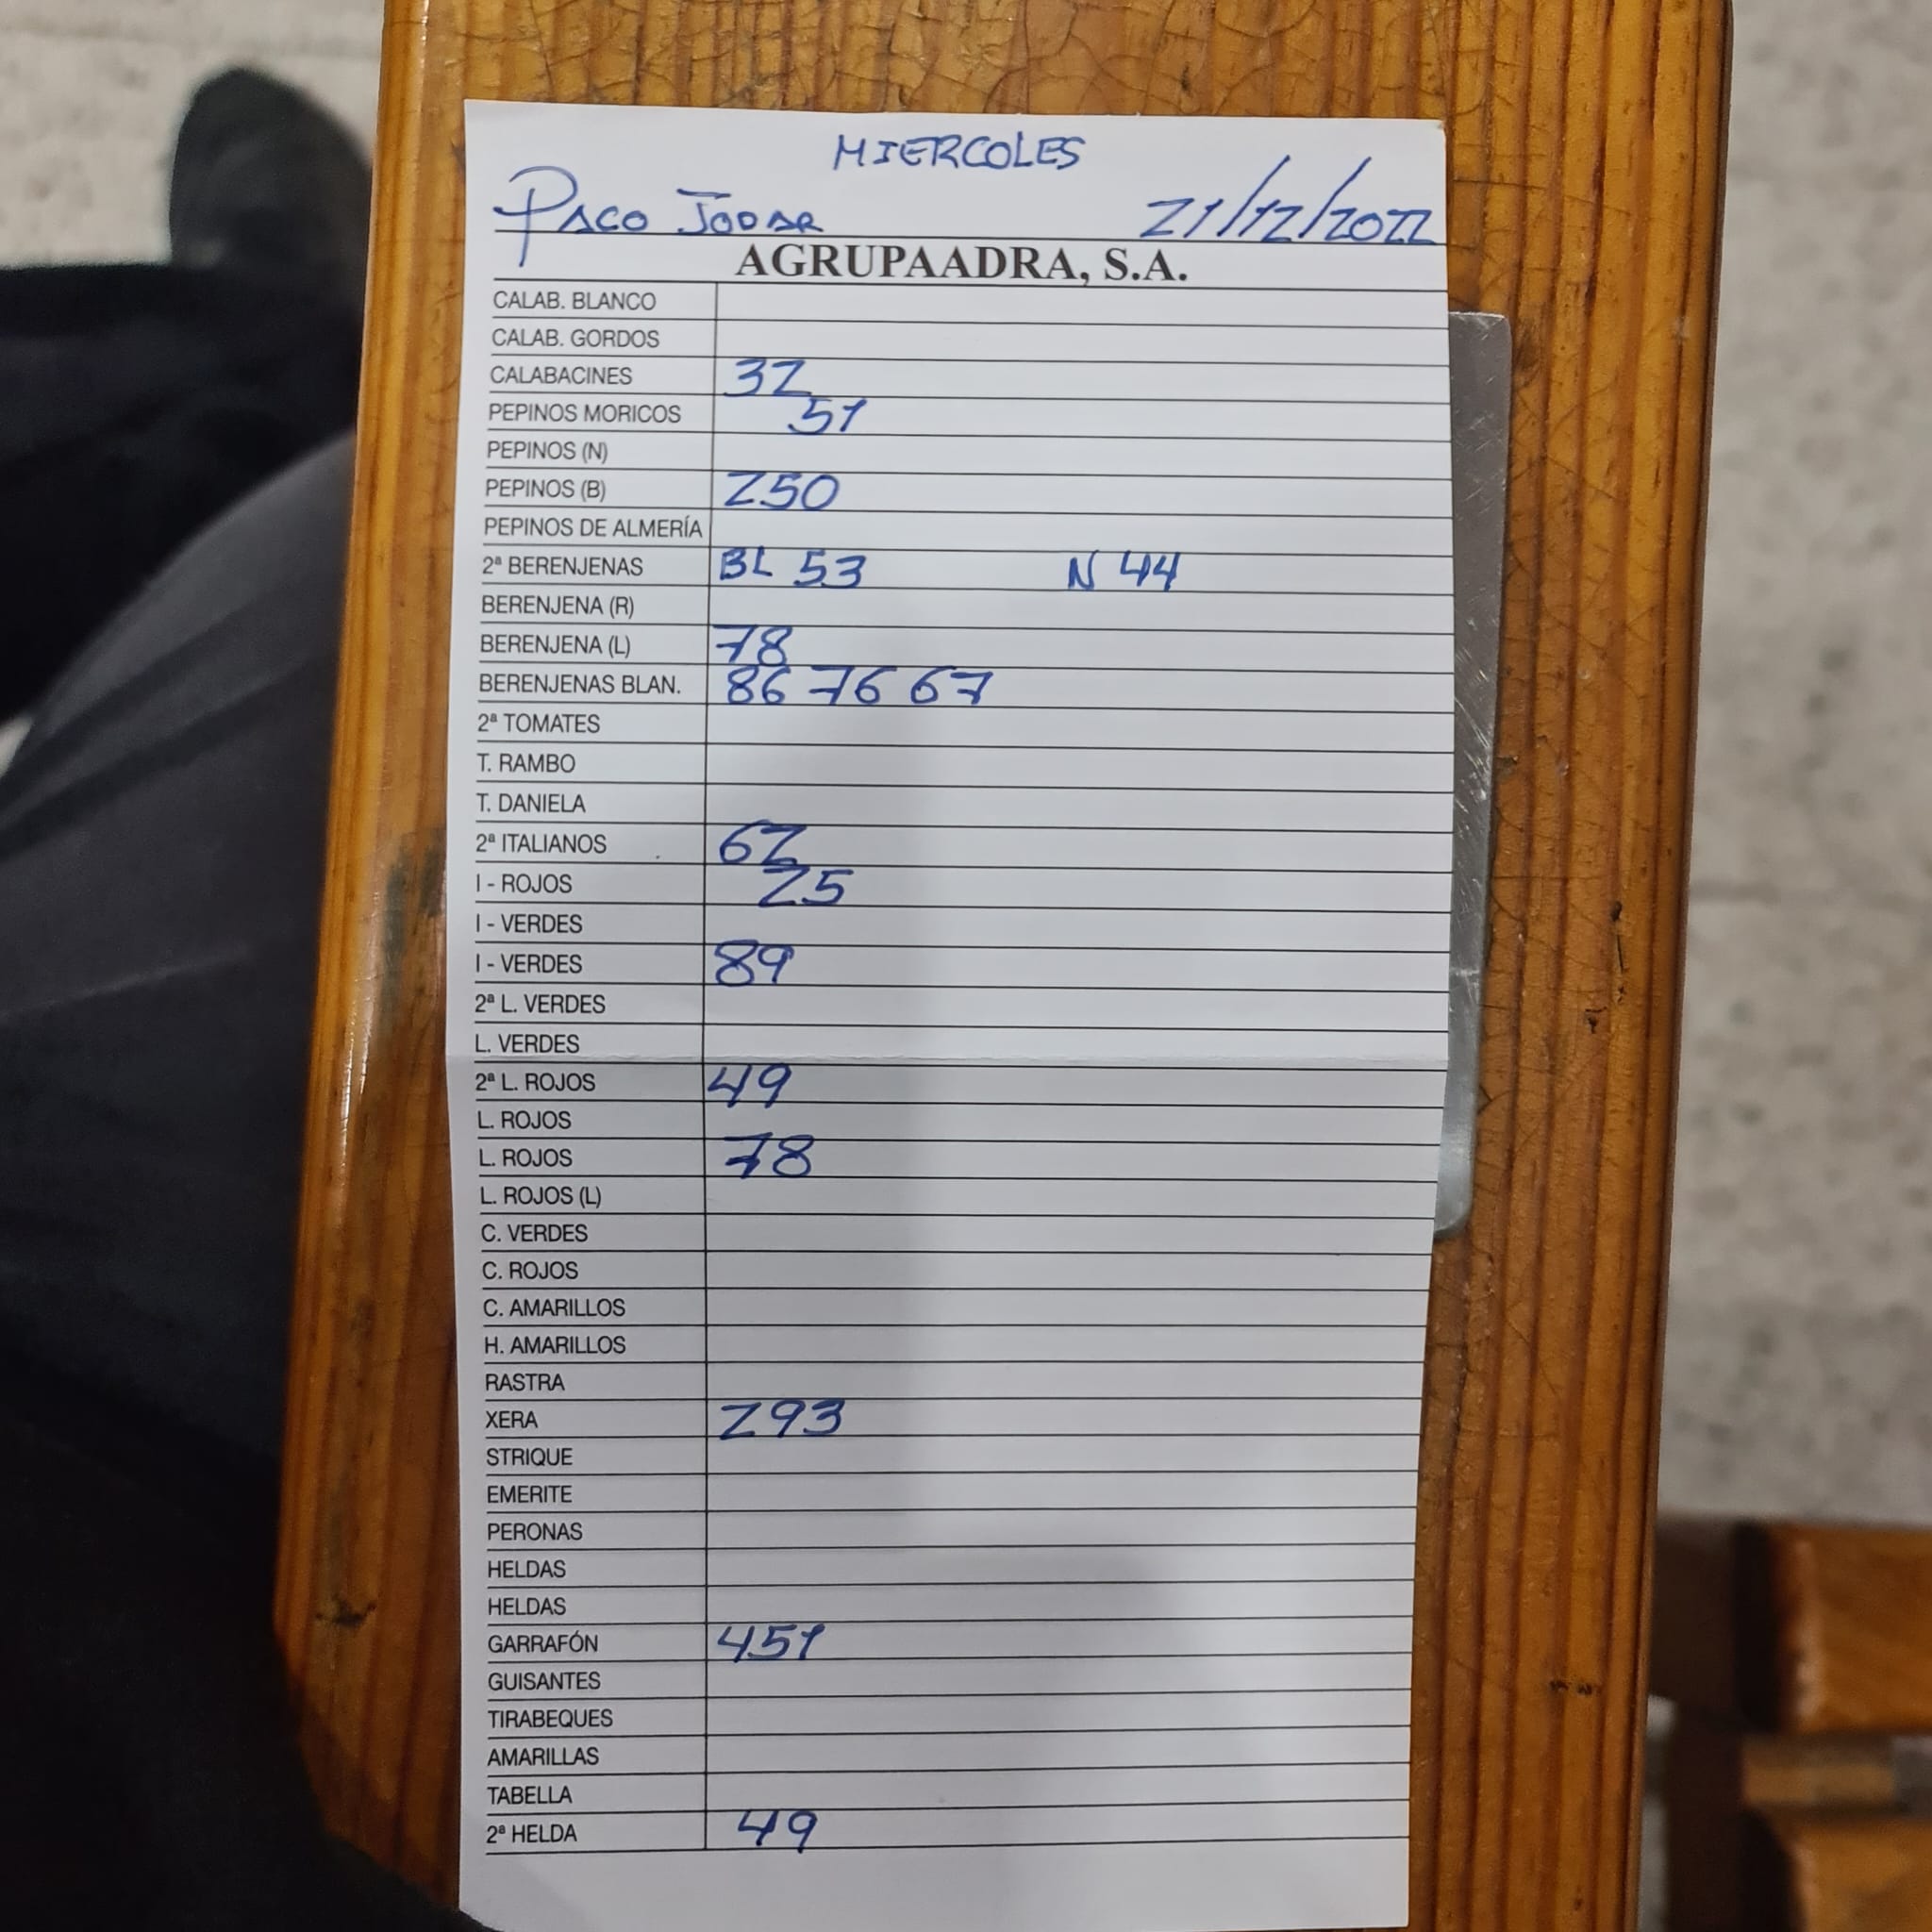 MIERCOLES
PACO JODAR 21/12/2022
AGRUPAADRA, S.A.
CALAB. BLANCO
CALAB. GORDOS
CALABACINES 32
PEPINOS MORICOS 51
PEPINOS (N)
PEPINOS (B) 250
PEPINOS DE ALMERÍA
2ª BERENJENAS BL 53 N 44
BERENJENA (R)
BERENJENA (L) 78
BERENJENAS BLAN. 86 76 67
2ª TOMATES
T. RAMBO
T. DANIELA
2ª ITALIANOS 62
I - ROJOS 25
I - VERDES
I - VERDES 89
2ª L. VERDES
L. VERDES
2ª L. ROJOS 49
L. ROJOS
L. ROJOS 78
L. ROJOS (L)
C. VERDES
C. ROJOS
C. AMARILLOS
H. AMARILLOS
RASTRA
XERA 293
STRIQUE
EMERITE
PERONAS
HELDAS
HELDAS
GARRAFÓN 451
GUISANTES
TIRABEQUES
AMARILLAS
TABELLA
2ª HELDA 49